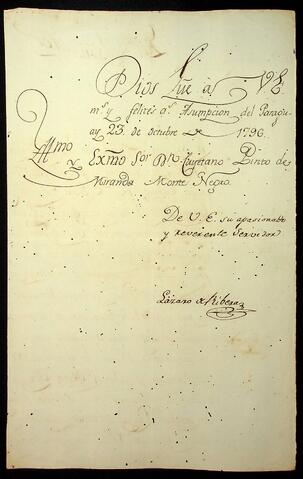 Dios gũe á V E
m.s y felices a.s Asumpcion del Paragu
ay 23 de octubre de 1796.
Yllmo y Exmo Sor Dn Cayetano Pinto de
Miranda Monte Negro.
De V. E. su apasionado
y reverente Servidor
Lázaro de Ribera